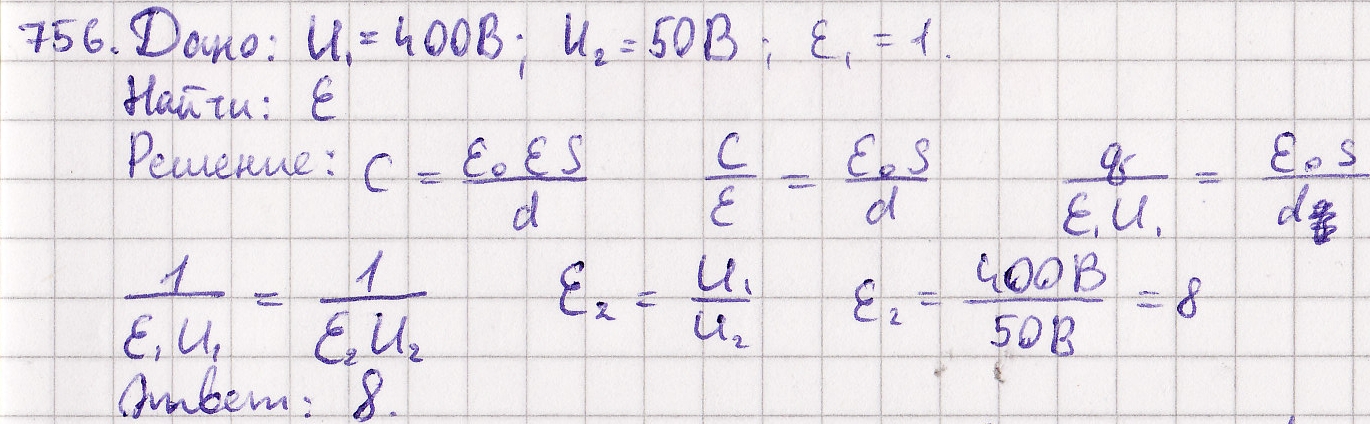 756. Дано: U₁ = 400В; U₂ = 50В; ε₁ = 1.
Найти: ε
Решение: C = ε₀εS/d   C/ε = ε₀S/d   q/ε₁U₁ = ε₀S/d
1/ε₁U₁ = 1/ε₂U₂   ε₂ = U₁/U₂   ε₂ = 400В/50В = 8
Ответ: 8.